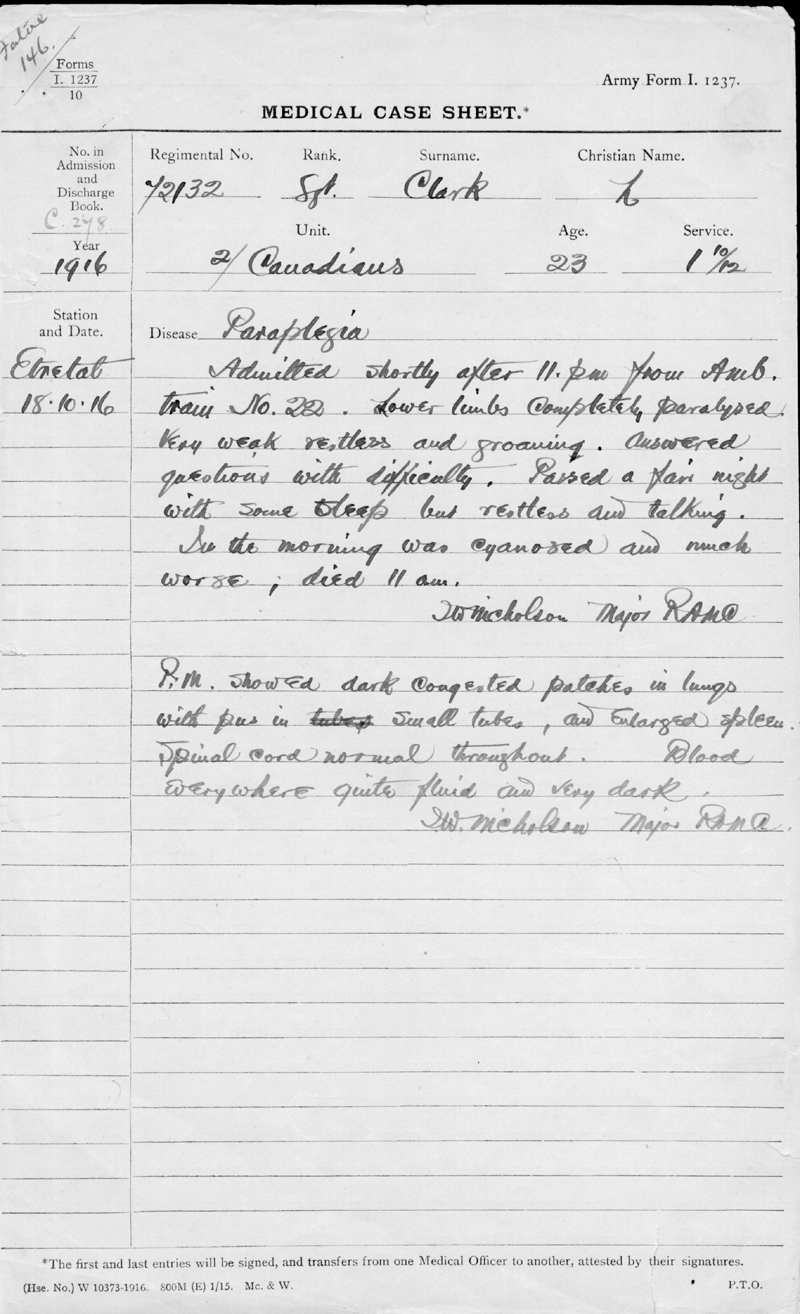 146.
Forms
I. 1237
10
Army Form I. 1237.
MEDICAL CASE SHEET.*
No. in
Admission
and
Discharge
Book.
C. 278
Year
1916
Regimental No. Rank. Surname. Christian Name.
72132 Sgt. Clark L
Unit. Age. Service.
2/ Canadians 23 1 10/12
Station
and Date.
Disease Paraplegia
Etretat
18.10.16
Admitted shortly after 11.pm from Amb.
train No. 22. Lower limbs completely paralysed.
Very weak restless and groaning. Answered
questions with difficulty. Passed a fair night
with some sleep but restless and talking.
In the morning was cyanosed and much
worse, died 11 am.
TW Nicholson Major RAMC
P.M. showed dark congested patches in lungs
with pus in tubes small tubes, and enlarged spleen.
Spinal cord normal throughout. Blood
everywhere quite fluid and very dark.
TW. Nicholson Major RAMC.
*The first and last entries will be signed, and transfers from one Medical Officer to another, attested by their signatures.
(Hse. No.) W 10373-1916. 800M (E) 1/15. Mc. & W. P.T.O.